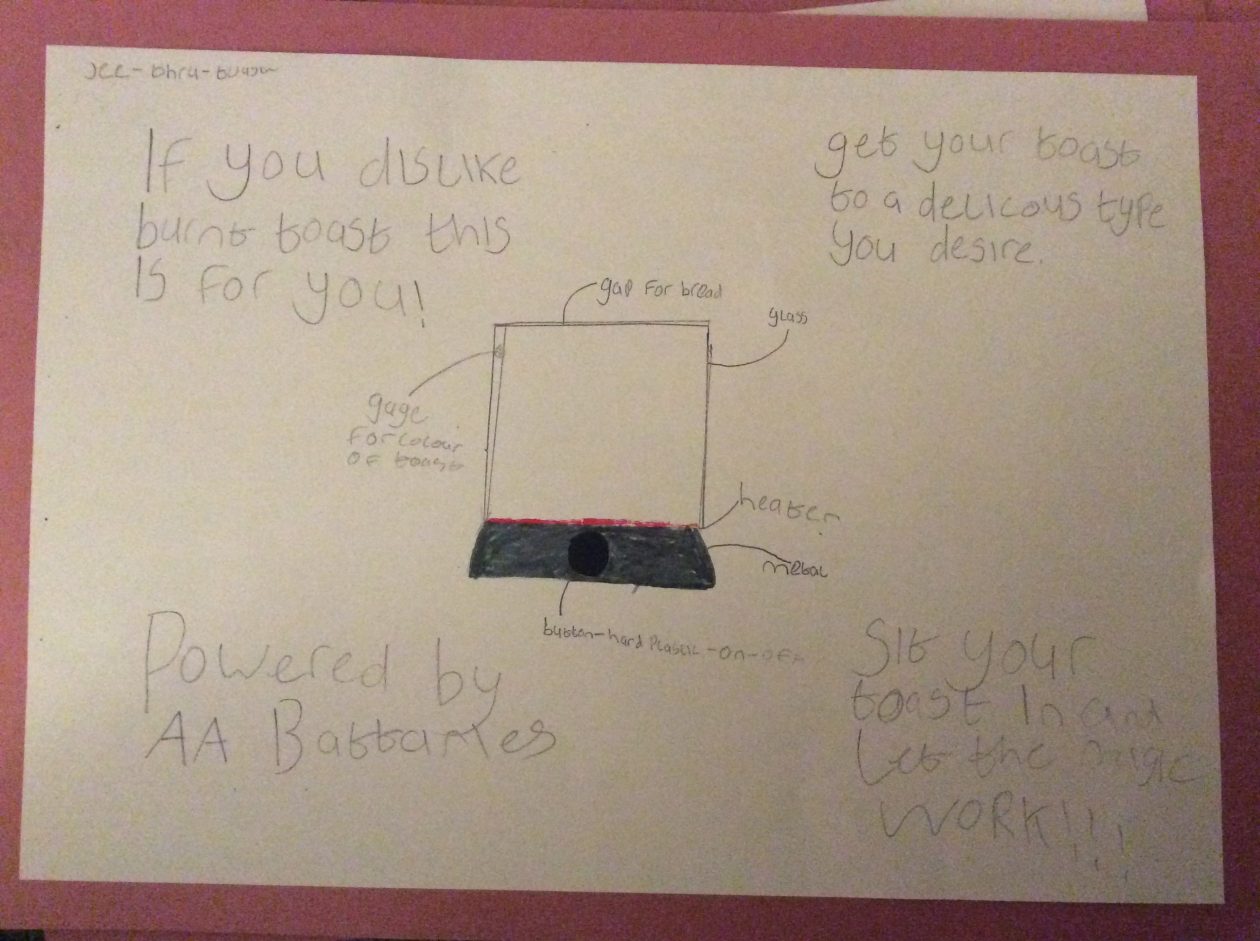 If you dislike
burnt toast this
is for you!
get your toast
to a delicous type
you desire.
gap for bread
glass
gage
for colour
of toast
heater
metal
button-hard plastic-on-off
Powered by
AA Battaries
Sit your
toast in and
let the magic
WORK!!!